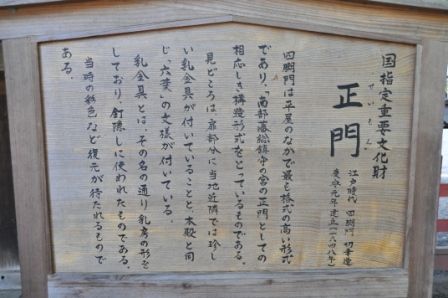 国指定重要文化財
せいもん
正門
江戸時代 四脚門 切妻造
慶安元年建立(一六四八年)
四脚門は平屋のなかで最も格式の高い形式
であり、「南部藩総鎮守の宮の正門としての
相応しき構造形式をとっているものである。
見どころは扉部分に当地近隣では珍し
い乳金具が付いていることと、本殿と同
じ「六葉」の文様が付いている。
乳金具とは、その名の通り乳房の形を
しており、釘隠しに使われたものである。
当時の彩色など復元が待たれるもので
ある。